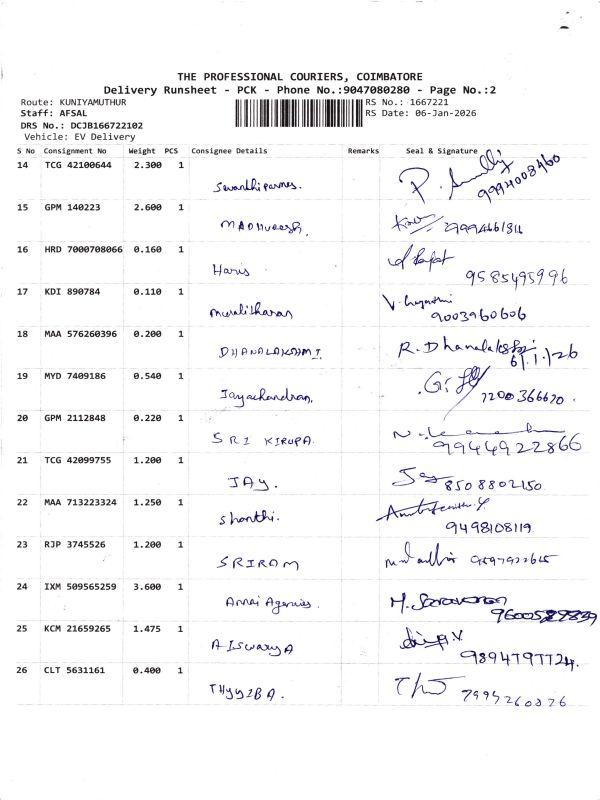 THE PROFESSIONAL COURIERS, COIMBATORE
Delivery Runsheet - PCK - Phone No.:9047080280 - Page No.:2
Route: KUNIYAMUTHUR RS No.: 1667221
Staff: AFSAL RS Date: 06-Jan-2026
DRS No.: DCJB166722102
Vehicle: EV Delivery
S No Consignment No Weight PCS Consignee Details Remarks Seal & Signature
14 TCG 42100644 2.300 1
9994008460
15 GPM 140223 2.600 1
MADHUREESH.
16 HRD 7000708066 0.160 1
Haris 9585495996
17 KDI 890784 0.110 1
Muralitharan 9003960606
18 MAA 576260396 0.200 1
DHANALAKSHMI R. Dhanalakshmi
6/1/26
19 MYD 7409186 0.540 1
Jayachandran. 7200366670.
20 GPM 2112848 0.220 1
SRI KIRUPA. 9944922866
21 TCG 42099755 1.200 1
JAY. Jay 8508802150
22 MAA 713223324 1.250 1
Shanthi. 9498108119
23 RJP 3745526 1.200 1
SRIRAM
24 IXM 509565259 3.600 1
Annai Agencies. M. Saravanan
25 KCM 21659265 1.475 1
AISWARYA 9894797724.
26 CLT 5631161 0.400 1
THYYIBA.